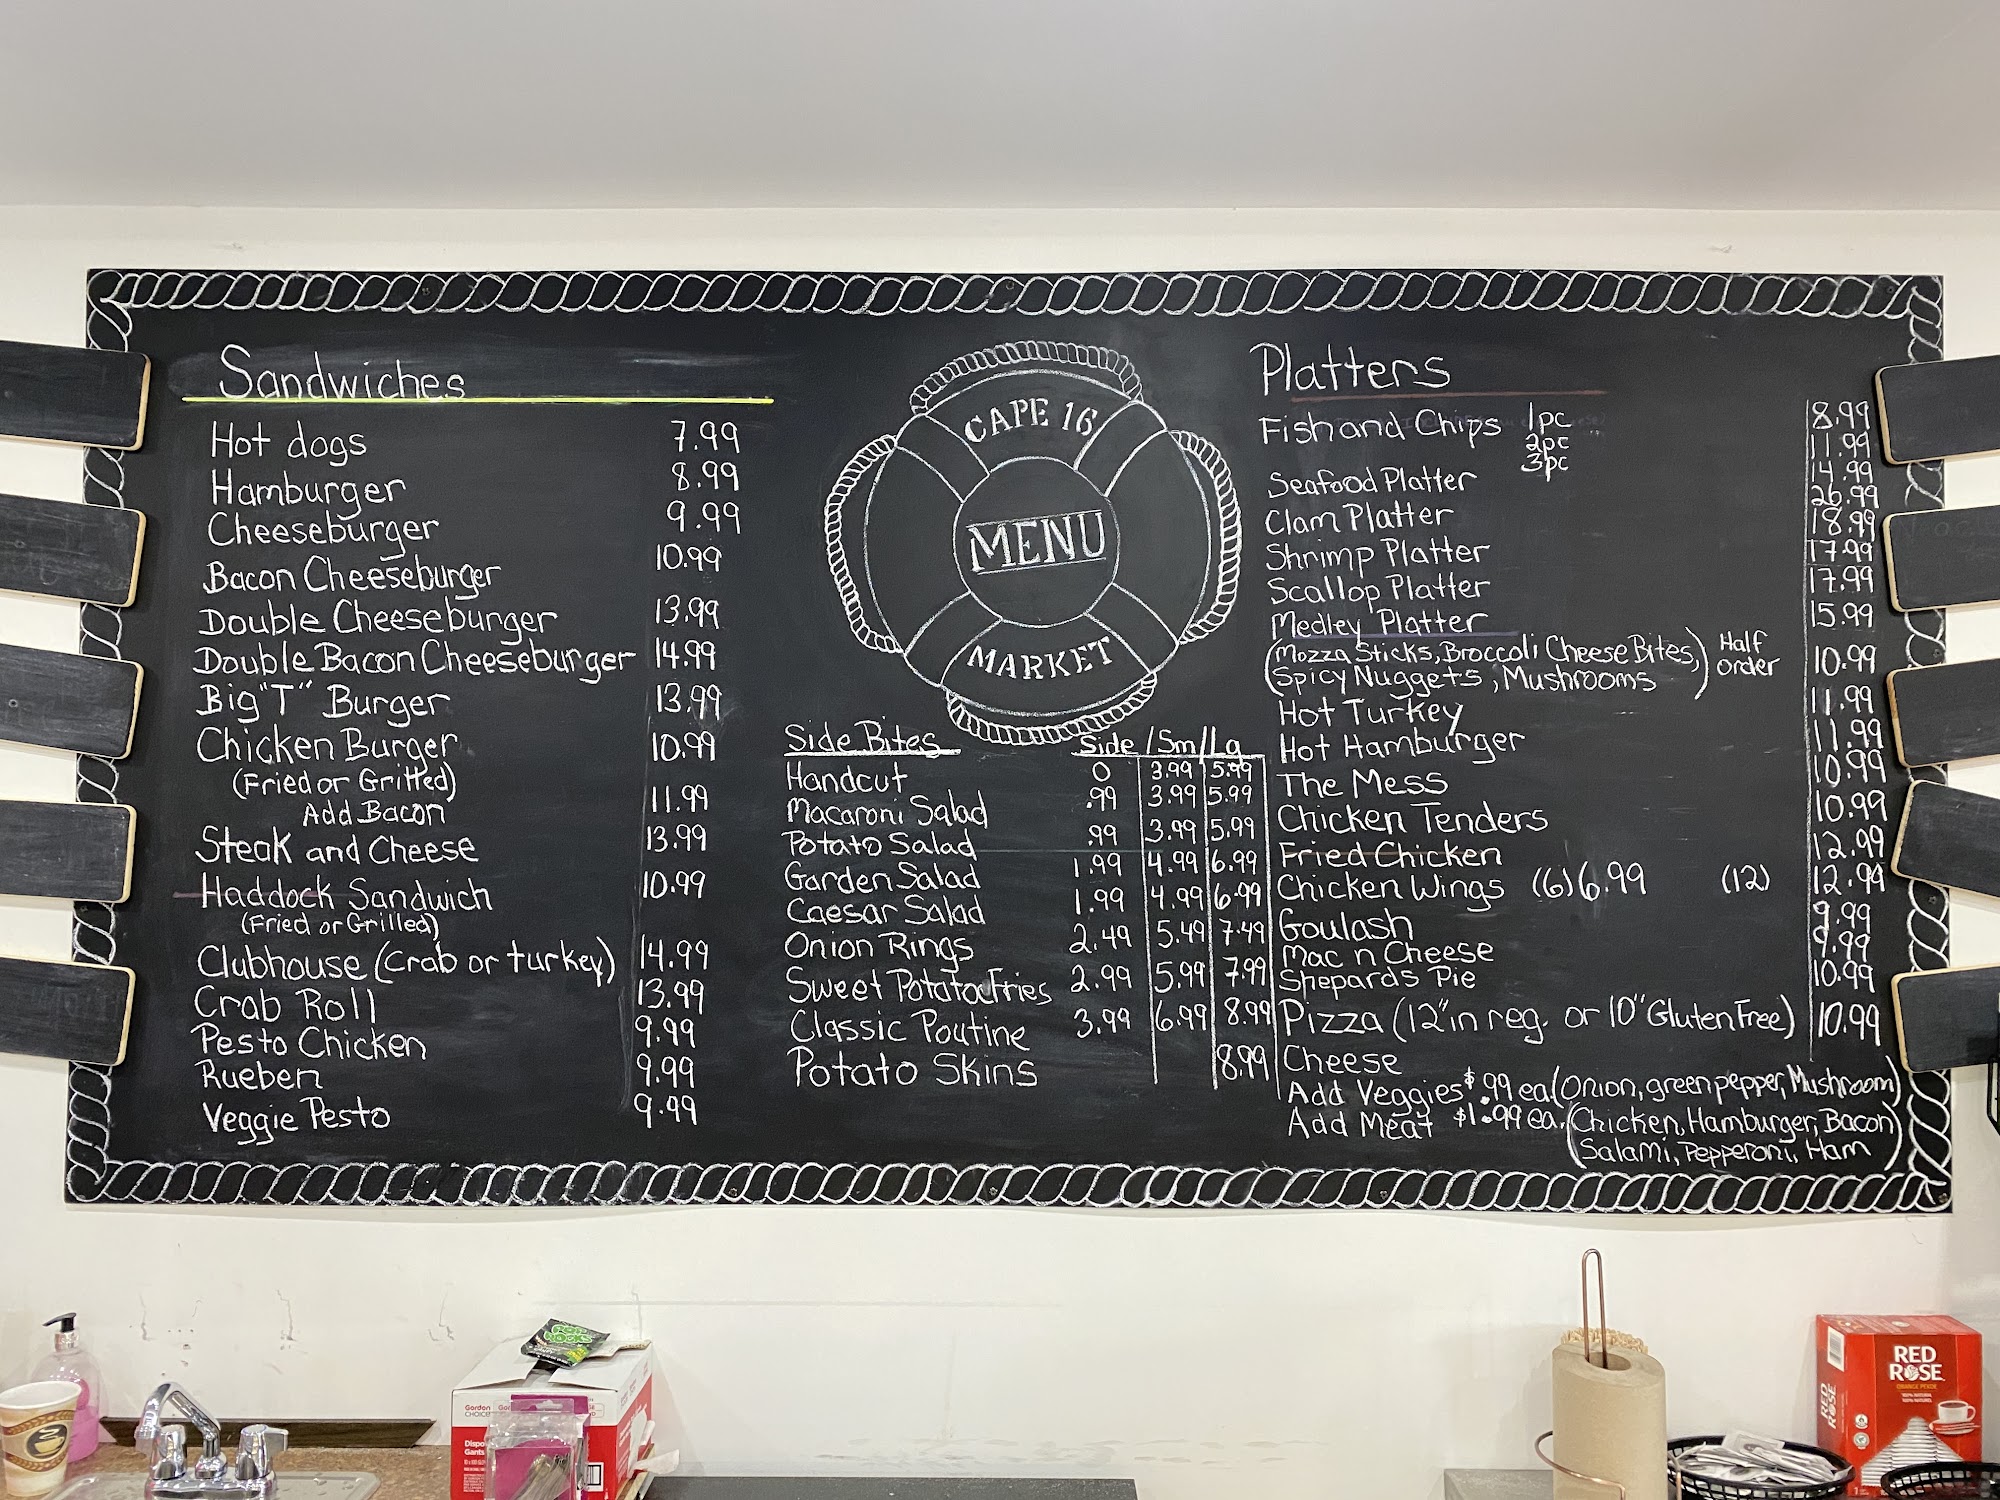 Sandwiches
Hot dogs 7.99
Hamburger 8.99
Cheeseburger 9.99
Bacon Cheeseburger 10.99
Double Cheeseburger 13.99
Double Bacon Cheeseburger 14.99
Big "T" Burger 13.99
Chicken Burger 10.99
(Fried or Grilled)
Add Bacon 11.99
Steak and Cheese 13.99
Haddock Sandwich 10.99
(Fried or Grilled)
Clubhouse (Crab or turkey) 14.99
Crab Roll 13.99
Pesto Chicken 9.99
Rueben 9.99
Veggie Pesto 9.99
CAPE 16
MENU
MARKET
Side Bites Side / Sm / Lg
Handcut 0 3.99 5.99
Macaroni Salad .99 3.99 5.99
Potato Salad .99 3.99 5.99
Garden Salad 1.99 4.99 6.99
Caesar Salad 1.99 4.99 6.99
Onion Rings 2.49 5.49 7.49
Sweet Potatoe Fries 2.99 5.99 7.99
Classic Poutine 3.99 6.99 8.99
Potato Skins 8.99
Platters
Fish and Chips 1pc 8.99
2pc 11.99
3pc 14.99
Seafood Platter 26.99
Clam Platter 18.99
Shrimp Platter 17.99
Scallop Platter 17.99
Medley Platter 15.99
(Mozza Sticks, Broccoli Cheese Bites, Half
Spicy Nuggets, Mushrooms) order 10.99
Hot Turkey 11.99
Hot Hamburger 11.99
The Mess 10.99
Chicken Tenders 10.99
Fried Chicken 12.99
Chicken Wings (6) 6.99 (12) 12.99
Goulash 9.99
Mac n Cheese 9.99
Shepards Pie 10.99
Pizza (12" in reg. or 10" Gluten Free) 10.99
Cheese
Add Veggies $.99 ea. (Onion, green pepper, Mushroom)
Add Meat $1.99 ea. (Chicken, Hamburger, Bacon
Salami, Pepperoni, Ham)
Gordon
CHOICE
RED
ROSE
ORANGE PEKOE
RED ROSE